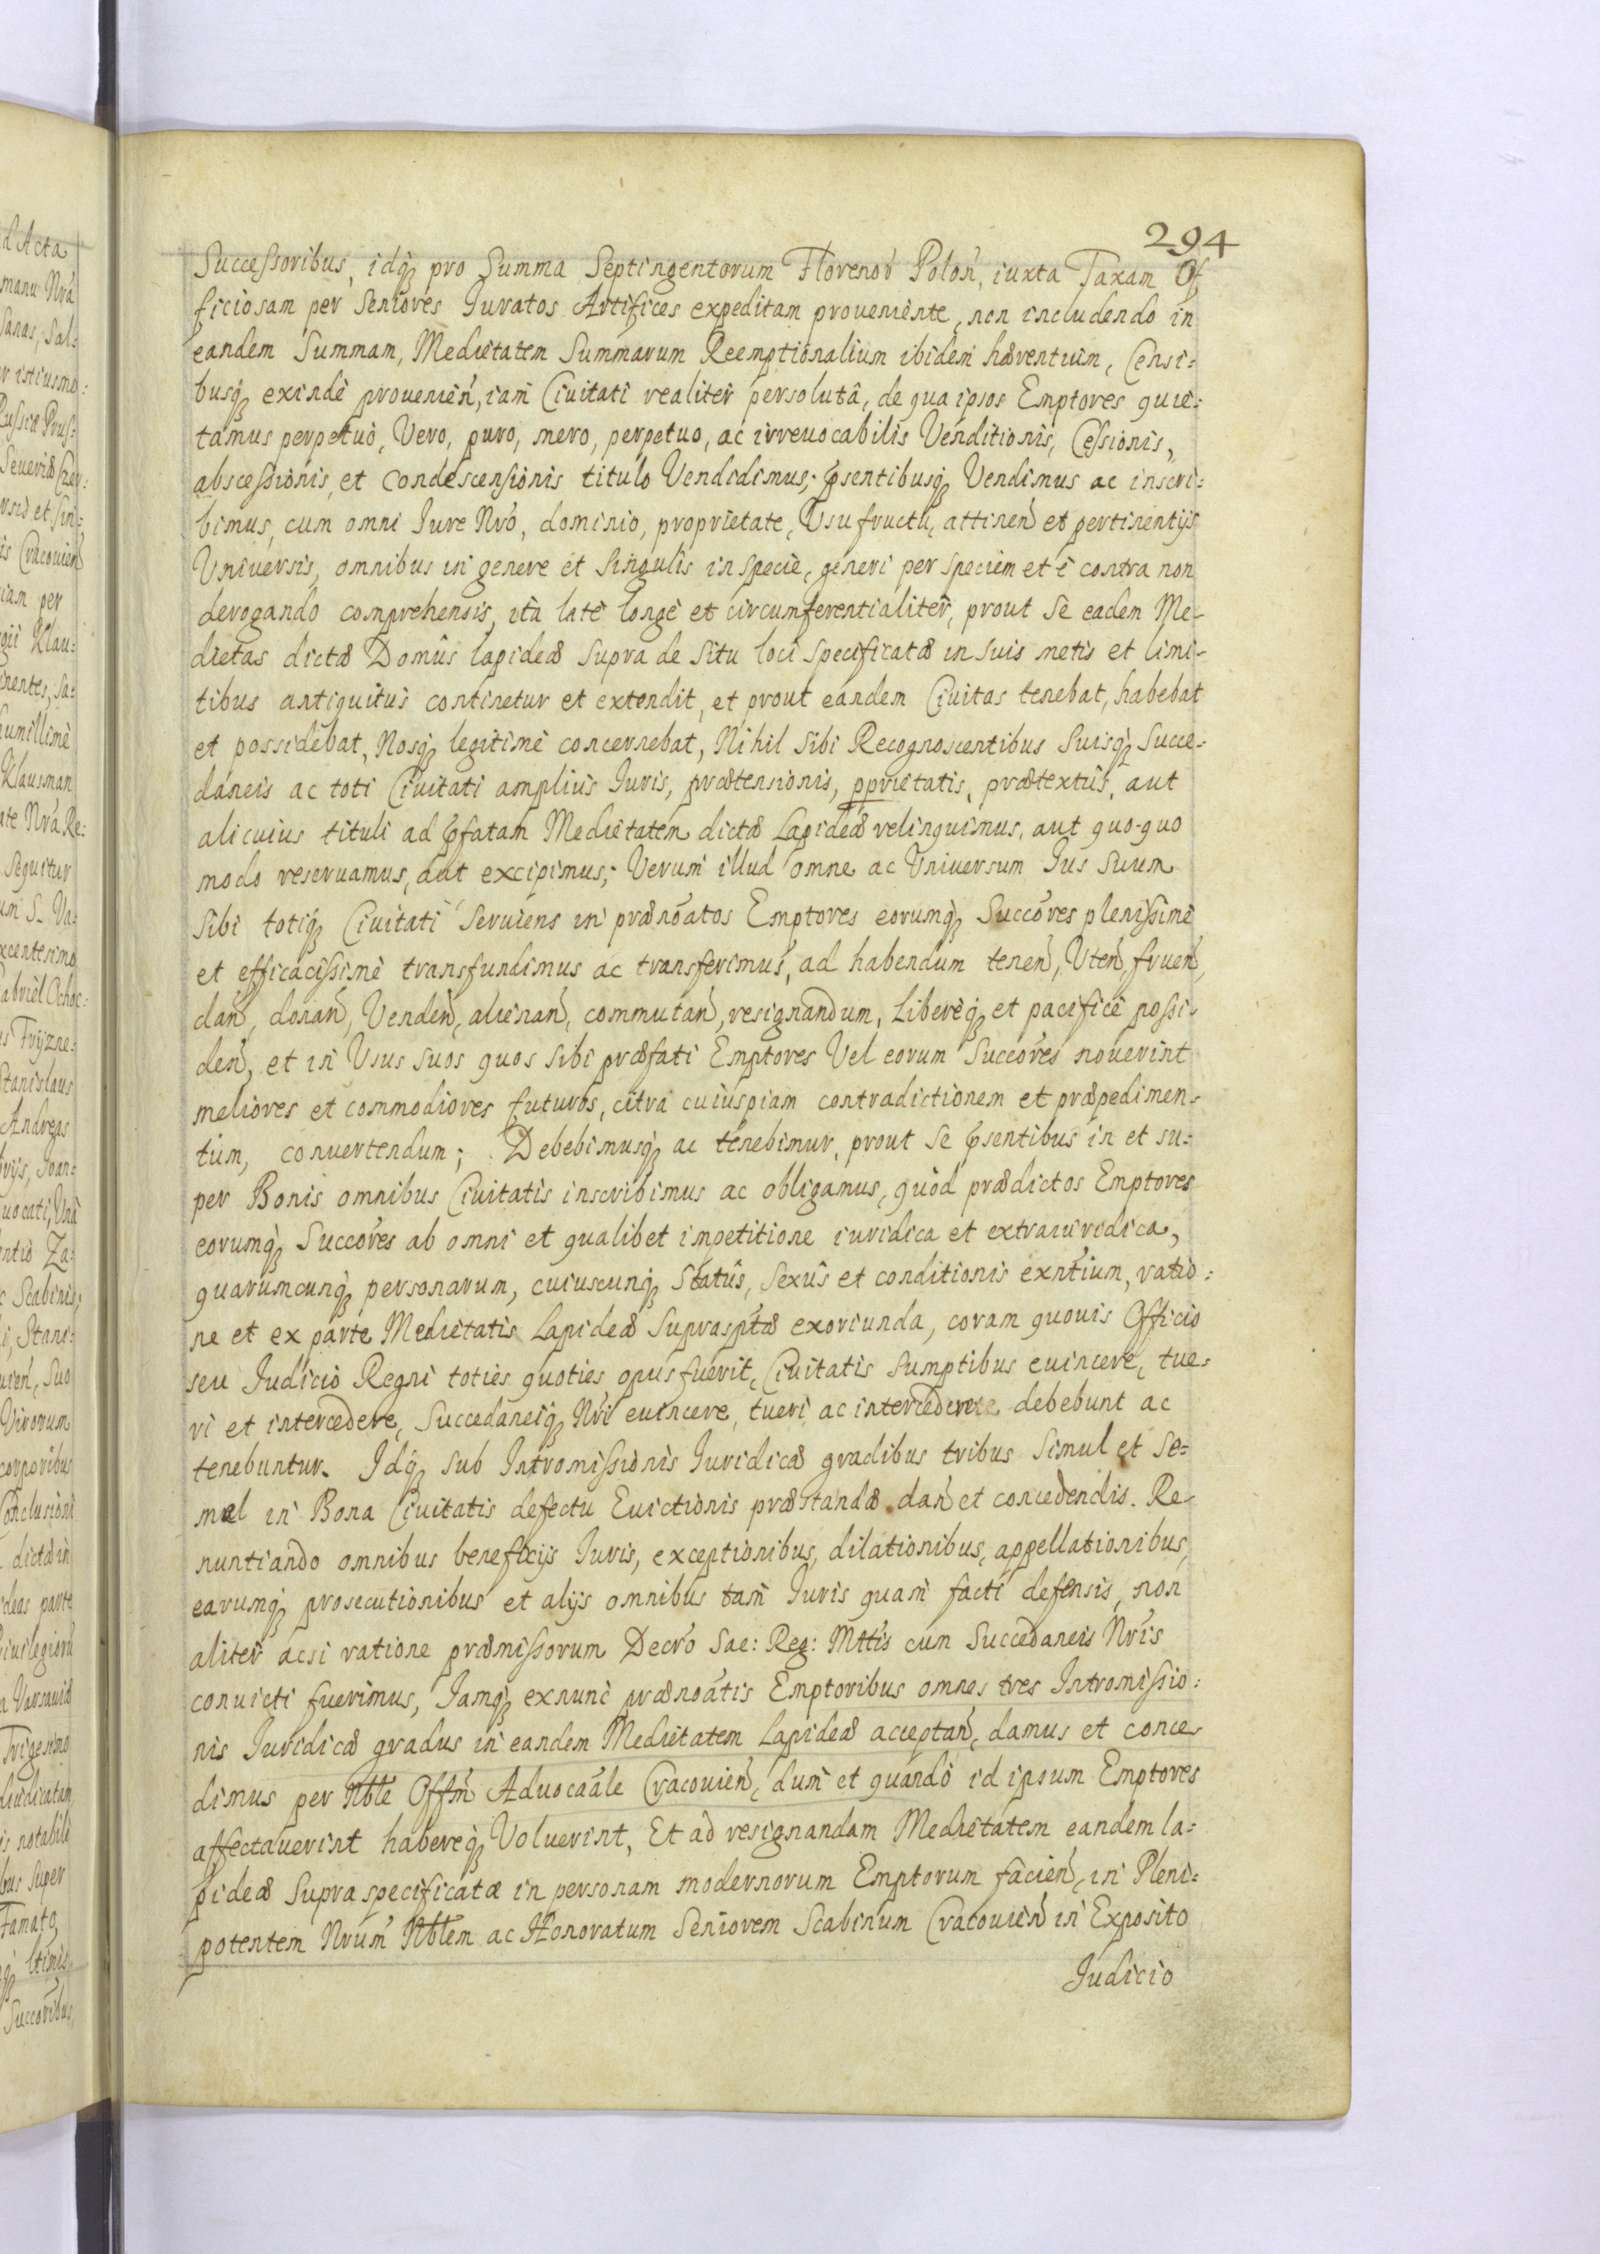 294
Successoribus, idq; pro Summa Septingentorum Florenor Poloń, iuxta Taxam Of
ficiosam per Seniores Iuratos Artifices expeditam proueniente, non includendo in
eandem Summam, Medietatem Summarum Reemptionalium ibidem hærentium, Censi-
busq; exindè prouenień, iam Ciuitati realiter persolutâ, de qua ipsos Emptores quie-
tamus perpetuò, Vero, puro, mero, perpetuo, ac irreuocabilis Venditionis, Cessionis,
abscessionis, et Condescensionis titulo Vendidimus; psentibusq; Vendimus ac inscri-
bimus, cum omni Iure Nrõ, dominio, proprietate, Vsufructu, attineń et pertinentijs
Vniversis, omnibus in genere et Singulis in speciè, generi per speciem et è contra non
derogando comprehensis, ità latè longè et circumferentialiter, prout Se eadem Me-
dietas dictæ Domûs lapideæ Supra de Situ loci Specificatæ in Suis metis et limi-
tibus antiquitus continetur et extendit, et prout eandem Ciuitas tenebat, habebat
et possidebat, Nosq; legitimè concernebat, Nihil Sibi Recognoscentibus Suisq; Succe-
daneis ac toti Ciuitati amplius Iuris, prætensionis, pprietatis, prætextûs, aut
alicuius tituli ad pfatam Medietatem dictæ Lapideæ relinquimus, aut quo-quo
modo reseruamus, aut excipimus; Verum illud omne ac Vniversum Ius Suum
Sibi totiq; Ciuitati Seruiens in prænoatos Emptores eorumq; Succores plenissimè
et efficacissimè transfundimus ac transferimus, ad habendum teneń, Vteń, frueń,
dań, donań, Vendeń, alienań, commutań, resignandum, Liberèq; et pacificè possi-
deń, et in Vsus Suos quos Sibi præfati Emptores Vel eorum Succores nouerint
meliores et commodiores futuros, citrà cuiuspiam contradictionem et præpedimen-
tum, conuertendum; Debebimusq; ac tenebimur, prout Se psentibus in et su-
per Bonis omnibus Ciuitatis inscribimus ac obligamus, quòd prædictos Emptores
eorumq; Succores ab omni et qualibet impetitione iuridica et extraiuridica,
quarumcunq; personarum, cuiuscunq; Statûs, Sexûs et conditionis exntium, ratio-
ne et ex parte Medietatis Lapideæ Supraspta exoriunda, coram quouis Officio
seu Iudicio Regni toties quoties opus fuerit, Ciuitatis Sumptibus euincere, tue-
ri et intercedere, Succedaneiq; Nri euincere, tueri, ac intercedere debebunt ac
tenebuntur. Idq; Sub Intromissionis Iuridicæ gradibus tribus Simul et Se-
mel in Bona Ciuitatis defectu Euictionis præstandæ dań et concedendis. Re-
nuntiando omnibus beneficijs Iuris, exceptionibus, dilationibus, appellationibus,
earumq; prosecutionibus et alijs omnibus tam Iuris quam facti defensis, non
aliter acsi ratione præmissorum Decro Sae: Reg: Mttis cum Succedaneis Nris
conuicti fuerimus, Iamq; exnunc prænoatis Emptoribus omnes tres Intromissio-
nis Iuridicæ gradus in eandem Medietatem Lapideæ acceptań, damus et conce-
dimus per Nble Offm Aduocaale Cracouień, dum et quandò id ipsum Emptores
affectauerint habereq; Voluerint, Et ad resignandam Medietatem eandem la-
pideæ Supra specificatæ in personam modernorum Emptorum facień, in Pleni-
potentem Nrum Nblem ac Honoratum Seniorem Scabinum Cracouień in Exposito
Judicio